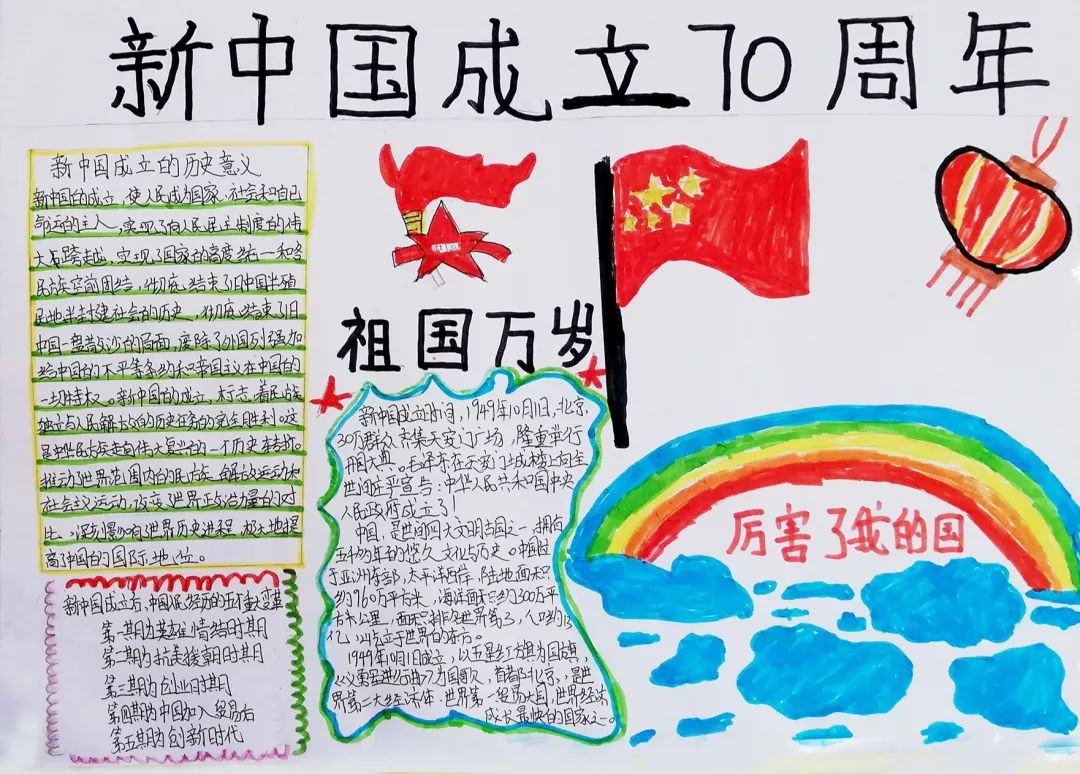 新中国成立70周年
新中国成立的历史意义
新中国的成立，使人民成为国家、社会和自己
命运的主人，实现了向人民民主制度的伟
大跨越，实现了国家的高度统一和各
民族空前团结，彻底结束了旧中国半殖
民地半封建社会的历史，彻底结束了旧
中国一盘散沙的局面，废除了外国列强加
给中国的不平等条约和帝国主义在中国的
一切特权。新中国的成立，标志着民族
独立人民解放的历史任务的完全胜利，这
是中华民族走向伟大复兴的一个历史转折。
推动了世界范围内的民族解放运动和
社会主义运动，改变了世界政治力量的对
比，深刻影响了世界历史进程，极大地提
高了中国的国际地位。
新中国成立后，中国人民经历的五个重大变革
第一期为英雄情结时期
第二期为抗美援朝时期
第三期为创业时期
第四期为中国加入贸易后
第五期为创新时代
祖国万岁
新中国成立时间，1949年10月1日，北京
30万群众齐集天安门广场，隆重举行
开国大典。毛泽东在天安门城楼上向全
世界庄严宣告：中华人民共和国中央
人民政府成立了！
中国，是世界四大文明古国之一，拥有
五千多年的悠久文化与历史。中国位
于亚洲东部，太平洋西岸，陆地面积
约960万平方米，海洋面积约300万平
方公里，面积排名世界第3，人口约13
亿，屹立于世界的东方。
1949年10月1日成立，以五星红旗为国旗，
《义勇军进行曲》为国歌，首都北京，是世
界第二大经济体，世界第一贸易大国，世界经济
成长最快的国家之一。
厉害了我的国